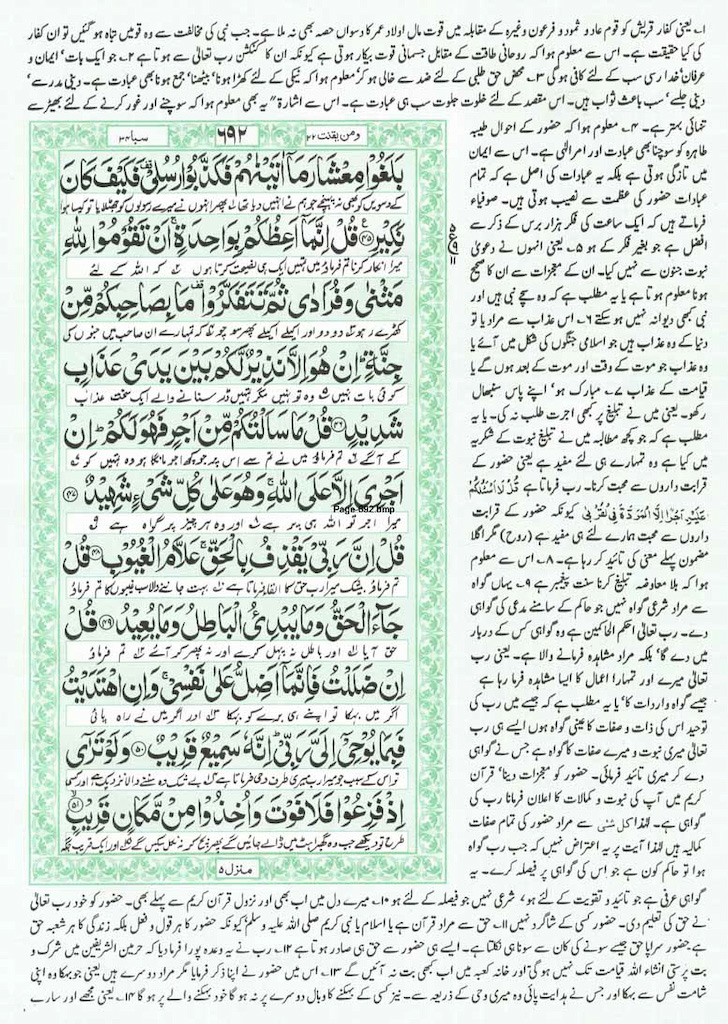 ۱۔ یعنی کفار قریش کو قوم عاد و ثمود و فرعون وغیرہ کے مقابلہ میں قوت مال اولاد عمر کا دسواں حصہ بھی نہ ملا ہے۔ جب نبی کی مخالفت سے وہ قومیں تباہ ہو گئیں تو ان کفار
کی کیا حقیقت ہے۔ اس سے معلوم ہوا کہ روحانی طاقت کے مقابل جسمانی قوت بیکار ہوتی ہے کیونکہ ان کا کنکشن رب تعالیٰ سے ہوتا ہے ۲۔ جو ایک بات' ایمان و
عرفان خدا رسی سب کے لئے کافی ہو گی ۳۔ محض حق طلبی کے لئے ضد سے خالی ہو کر' معلوم ہوا کہ نیکی کے لئے کھڑا ہونا' بیٹھنا' جمع ہونا بھی عبادت ہے۔ دینی مدرسے'
دینی جلسے' سب باعث ثواب ہیں۔ اس مقصد کے لئے خلوت جلوت سب ہی عبادت ہے۔ اس سے اشارۃً یہ بھی معلوم ہوا کہ سوچنے اور غور کرنے کے لئے بھیڑ سے
تنہائی بہتر ہے۔ ۴۔ معلوم ہوا کہ حضور کے احوال طیبہ
طاہرہ کو سوچنا بھی عبادت اور امر الٰہی ہے۔ اس سے ایمان
میں تازگی ہوتی ہے بلکہ یہ عبادات کی اصل ہے کہ تمام
عبادات حضور کی عظمت سے نصیب ہوتی ہیں۔ صوفیاء
فرماتے ہیں کہ ایک ساعت کی فکر ہزار برس کے ذکر سے
افضل ہے جو بغیر فکر کے ہو ۵۔ یعنی انہوں نے دعویٰ
نبوت جنون سے نہیں کیا۔ ان کے معجزات سے ان کا صحیح
ہونا معلوم ہوتا ہے یا یہ مطلب ہے کہ وہ سچے نبی ہیں اور
نبی کبھی دیوانہ نہیں ہو سکتے ۶۔ اس عذاب سے مراد یا تو
دنیا کے وہ عذاب ہیں جو اسلامی جنگوں کی شکل میں آئے یا
وہ عذاب جو موت کے وقت اور موت کے بعد ہوں گے یا
قیامت کے عذاب ۷۔ مبارک ہو' اپنے پاس سنبھال
رکھو۔ یعنی میں نے تبلیغ پر کبھی اجرت طلب نہ کی۔ یا یہ
مطلب ہے کہ جو کچھ مطالبہ میں نے تبلیغ نبوت کے شکریہ
میں کیا ہے وہ تمہارے ہی لئے مفید ہے یعنی حضور کے
قرابت داروں سے محبت کرنا۔ رب فرماتا ہے قُلْ لَا اَسْئَلُكُمْ
عَلَيْهِ اَجْرًا اِلَّا الْمَوَدَّةَ فِي الْقُرْبٰى کیونکہ حضور کے قرابت
داروں سے محبت ہمارے لئے ہی مفید ہے (روح) مگر اگلا
مضمون پہلے معنی کی تائید کر رہا ہے۔ ۸۔ اس سے معلوم
ہوا کہ بلا معاوضہ تبلیغ کرنا سنت پیغمبر ہے ۹۔ یہاں گواہ
سے مراد شرعی گواہ نہیں جو حاکم کے سامنے مدعی کی گواہی
دے۔ رب تعالیٰ احکم الحاکمین ہے وہ گواہی کس کے دربار
میں دے گا' بلکہ مراد مشاہدہ فرمانے والا ہے۔ یعنی رب
تعالیٰ میرے اور تمہارا اعمال کا ایسا مشاہدہ فرما رہا ہے
جیسے گواہ واردات کا' یا یہ مطلب ہے کہ جیسے میں رب کی
توحید اس کی ذات و صفات کا عینی گواہ ہوں ایسے ہی رب
تعالیٰ میری نبوت و میرے صفات کا گواہ ہے جس نے گواہی
دے کر میری تائید فرمائی۔ حضور کو معجزات دینا' قرآن
کریم میں آپ کی نبوت و کمالات کا اعلان فرمانا رب کی
گواہی ہے۔ لہٰذا کل شئی سے مراد حضور کی تمام صفات
کمالیہ ہیں لہٰذا آیت پر یہ اعتراض نہیں کہ جب رب گواہ
ہوا تو حاکم کون ہے جو اس کی گواہی پر فیصلہ کرے۔ یہ
ومن یقنت ۲۲ ۶۹۲ سبا ۳۴
بَلَغُوْا مِعْشَارَ مَاۤ اٰتَيْنٰهُمْ فَكَذَّبُوْا رُسُلِيْ فَكَيْفَ كَانَ
کے دسویں کو بھی نہ پہنچے جو ہم نے انہیں دیا تھا پھر انہوں نے میرے رسولوں کو جھٹلایا تو کیسا ہوا
نَكِيْرِ ﴿۴۵﴾ قُلْ اِنَّمَاۤ اَعِظُكُمْ بِوَاحِدَةٍ ۚ اَنْ تَقُوْمُوْا لِلّٰهِ
میرا انکار کرنا تم فرماؤ میں تمہیں ایک ہی نصیحت کرتا ہوں کہ اللہ کے لئے
مَثْنٰى وَفُرَادٰى ثُمَّ تَتَفَكَّرُوْا ۫ مَا بِصَاحِبِكُمْ مِّنْ
کھڑے رہو دو دو اور اکیلے اکیلے پھر سوچو کہ تمہارے ان صاحب میں جنوں کی
جِنَّةٍ ؕ اِنْ هُوَ اِلَّا نَذِيْرٌ لَّكُمْ بَيْنَ يَدَيْ عَذَابٍ
کوئی بات نہیں وہ تو نہیں مگر تمہیں ڈر سنانے والے ایک سخت عذاب
شَدِيْدٍ ﴿۴۶﴾ قُلْ مَا سَاَلْتُكُمْ مِّنْ اَجْرٍ فَهُوَ لَكُمْ ؕ اِنْ
کے آگے تم فرماؤ میں نے تم سے اس پر جو کچھ اجر مانگا ہو وہ تمہیں کو
اَجْرِيَ اِلَّا عَلَى اللّٰهِ ۚ وَهُوَ عَلٰى كُلِّ شَيْءٍ شَهِيْدٌ ﴿۴۷﴾
Page-692.bmp
میرا اجر تو اللہ ہی پر ہے اور وہ ہر چیز پر گواہ ہے
قُلْ اِنَّ رَبِّيْ يَقْذِفُ بِالْحَقِّ ۚ عَلَّامُ الْغُيُوْبِ ﴿۴۸﴾ قُلْ
تم فرماؤ بیشک میرا رب حق کا القا فرماتا ہے بہت جاننے والا سب غیبوں کا تم فرماؤ
جَآءَ الْحَقُّ وَمَا يُبْدِئُ الْبَاطِلُ وَمَا يُعِيْدُ ﴿۴۹﴾ قُلْ
حق آیا اور باطل نہ پہل کرے اور نہ پھر کر آئے تم فرماؤ
اِنْ ضَلَلْتُ فَاِنَّمَاۤ اَضِلُّ عَلٰى نَفْسِيْ ۚ وَاِنِ اهْتَدَيْتُ
اگر میں بہکا تو اپنے ہی برے کو بہکا اور اگر میں نے راہ پائی
فَبِمَا يُوْحِيْۤ اِلَيَّ رَبِّيْ ؕ اِنَّهٗ سَمِيْعٌ قَرِيْبٌ ﴿۵۰﴾ وَلَوْ تَرٰۤى
تو اس کے سبب جو میرا رب میری طرف وحی فرماتا ہے بے شک وہ سننے والا نزدیک ہے اور کسی
اِذْ فَزِعُوْا فَلَا فَوْتَ وَاُخِذُوْا مِنْ مَّكَانٍ قَرِيْبٍ ﴿۵۱﴾
طرح تو دیکھے جب وہ گھبراہٹ میں ڈالے جائیں گے پھر بچ کر نہ نکل سکیں گے اور ایک قریب جگہ
منزل ۵
گواہی عرفی ہے جو تائید و تقویت کے لئے ہو' شرعی نہیں جو فیصلہ کے لئے ہو ۱۰۔ میرے دل میں اب بھی اور نزول قرآن کریم سے پہلے بھی۔ حضور کو خود رب تعالیٰ
نے حق کی تعلیم دی۔ حضور کسی کے شاگرد نہیں ۱۱۔ حق سے مراد قرآن ہے یا اسلام یا نبی کریم صلی اللہ علیہ وسلم' کیونکہ حضور کا ہر قول و فعل بلکہ زندگی کا ہر شعبہ حق
ہے حضور سراپا حق جیسے سونے کی کان سے سونا ہی نکلتا ہے۔ ایسے ہی حضور سے حق ہی صادر ہوتا ہے ۱۲۔ رب نے یہ وعدہ پورا فرما دیا کہ حرمین الشریفین میں شرک و
بت پرستی انشاء اللہ قیامت تک نہیں ہو گی' اور خانہ کعبہ میں اب کبھی بت نہ آئیں گے ۱۳۔ اس میں حضور نے اپنا ذکر فرمایا مگر مراد دوسرے ہیں یعنی جو بہکا وہ اپنی
شامت نفس سے بہکا اور جس نے ہدایت پائی وہ میری وحی کے ذریعہ سے۔ نیز کسی کے بہکنے کا وبال دوسرے پر نہ ہو گا خود بہکنے والے پر ہو گا ۱۴۔ یعنی مجھے اور سارے